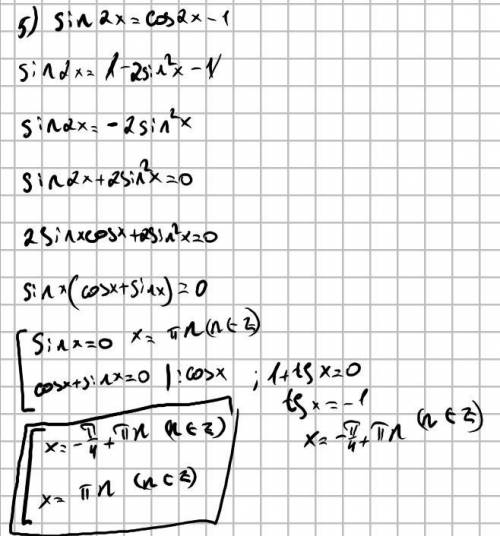 5) sin 2x = cos2x - 1
sin2x = 1 - 2sin²x - 1
sin2x = -2sin²x
sin2x + 2sin²x = 0
2sinxcosx + 2sin²x = 0
sinx(cosx + sinx) = 0
sinx = 0 x = πn (n ∈ Z)
cosx + sinx = 0 | : cosx ; 1 + tg x = 0
tg x = -1
x = -π/4 + πn (n ∈ Z)
x = -π/4 + πn (n ∈ Z)
x = πn (n ∈ Z)